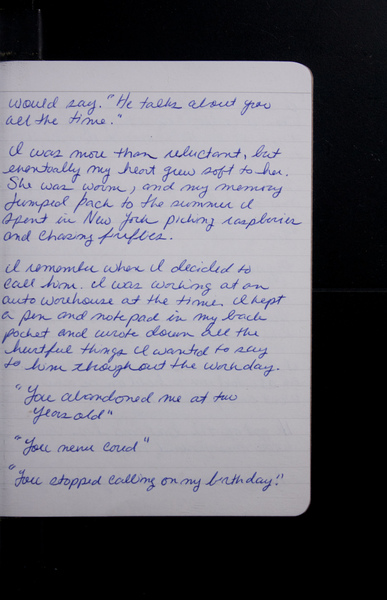 would say. "He talks about you
all the time."
I was more than reluctant, but
eventually my heart grew soft to her.
She was warm, and my memory
jumped back to the summer I
spent in New York picking raspberries
and chasing fireflies.
I remember when I decided to
call him. I was working at an
auto warehouse at the time. I kept
a pen and notepad in my back
pocket and wrote down all the
hurtful things I wanted to say
to him throughout the workday.
"You abandoned me at two
years old"
"You never cared"
"You stopped calling on my birthday."